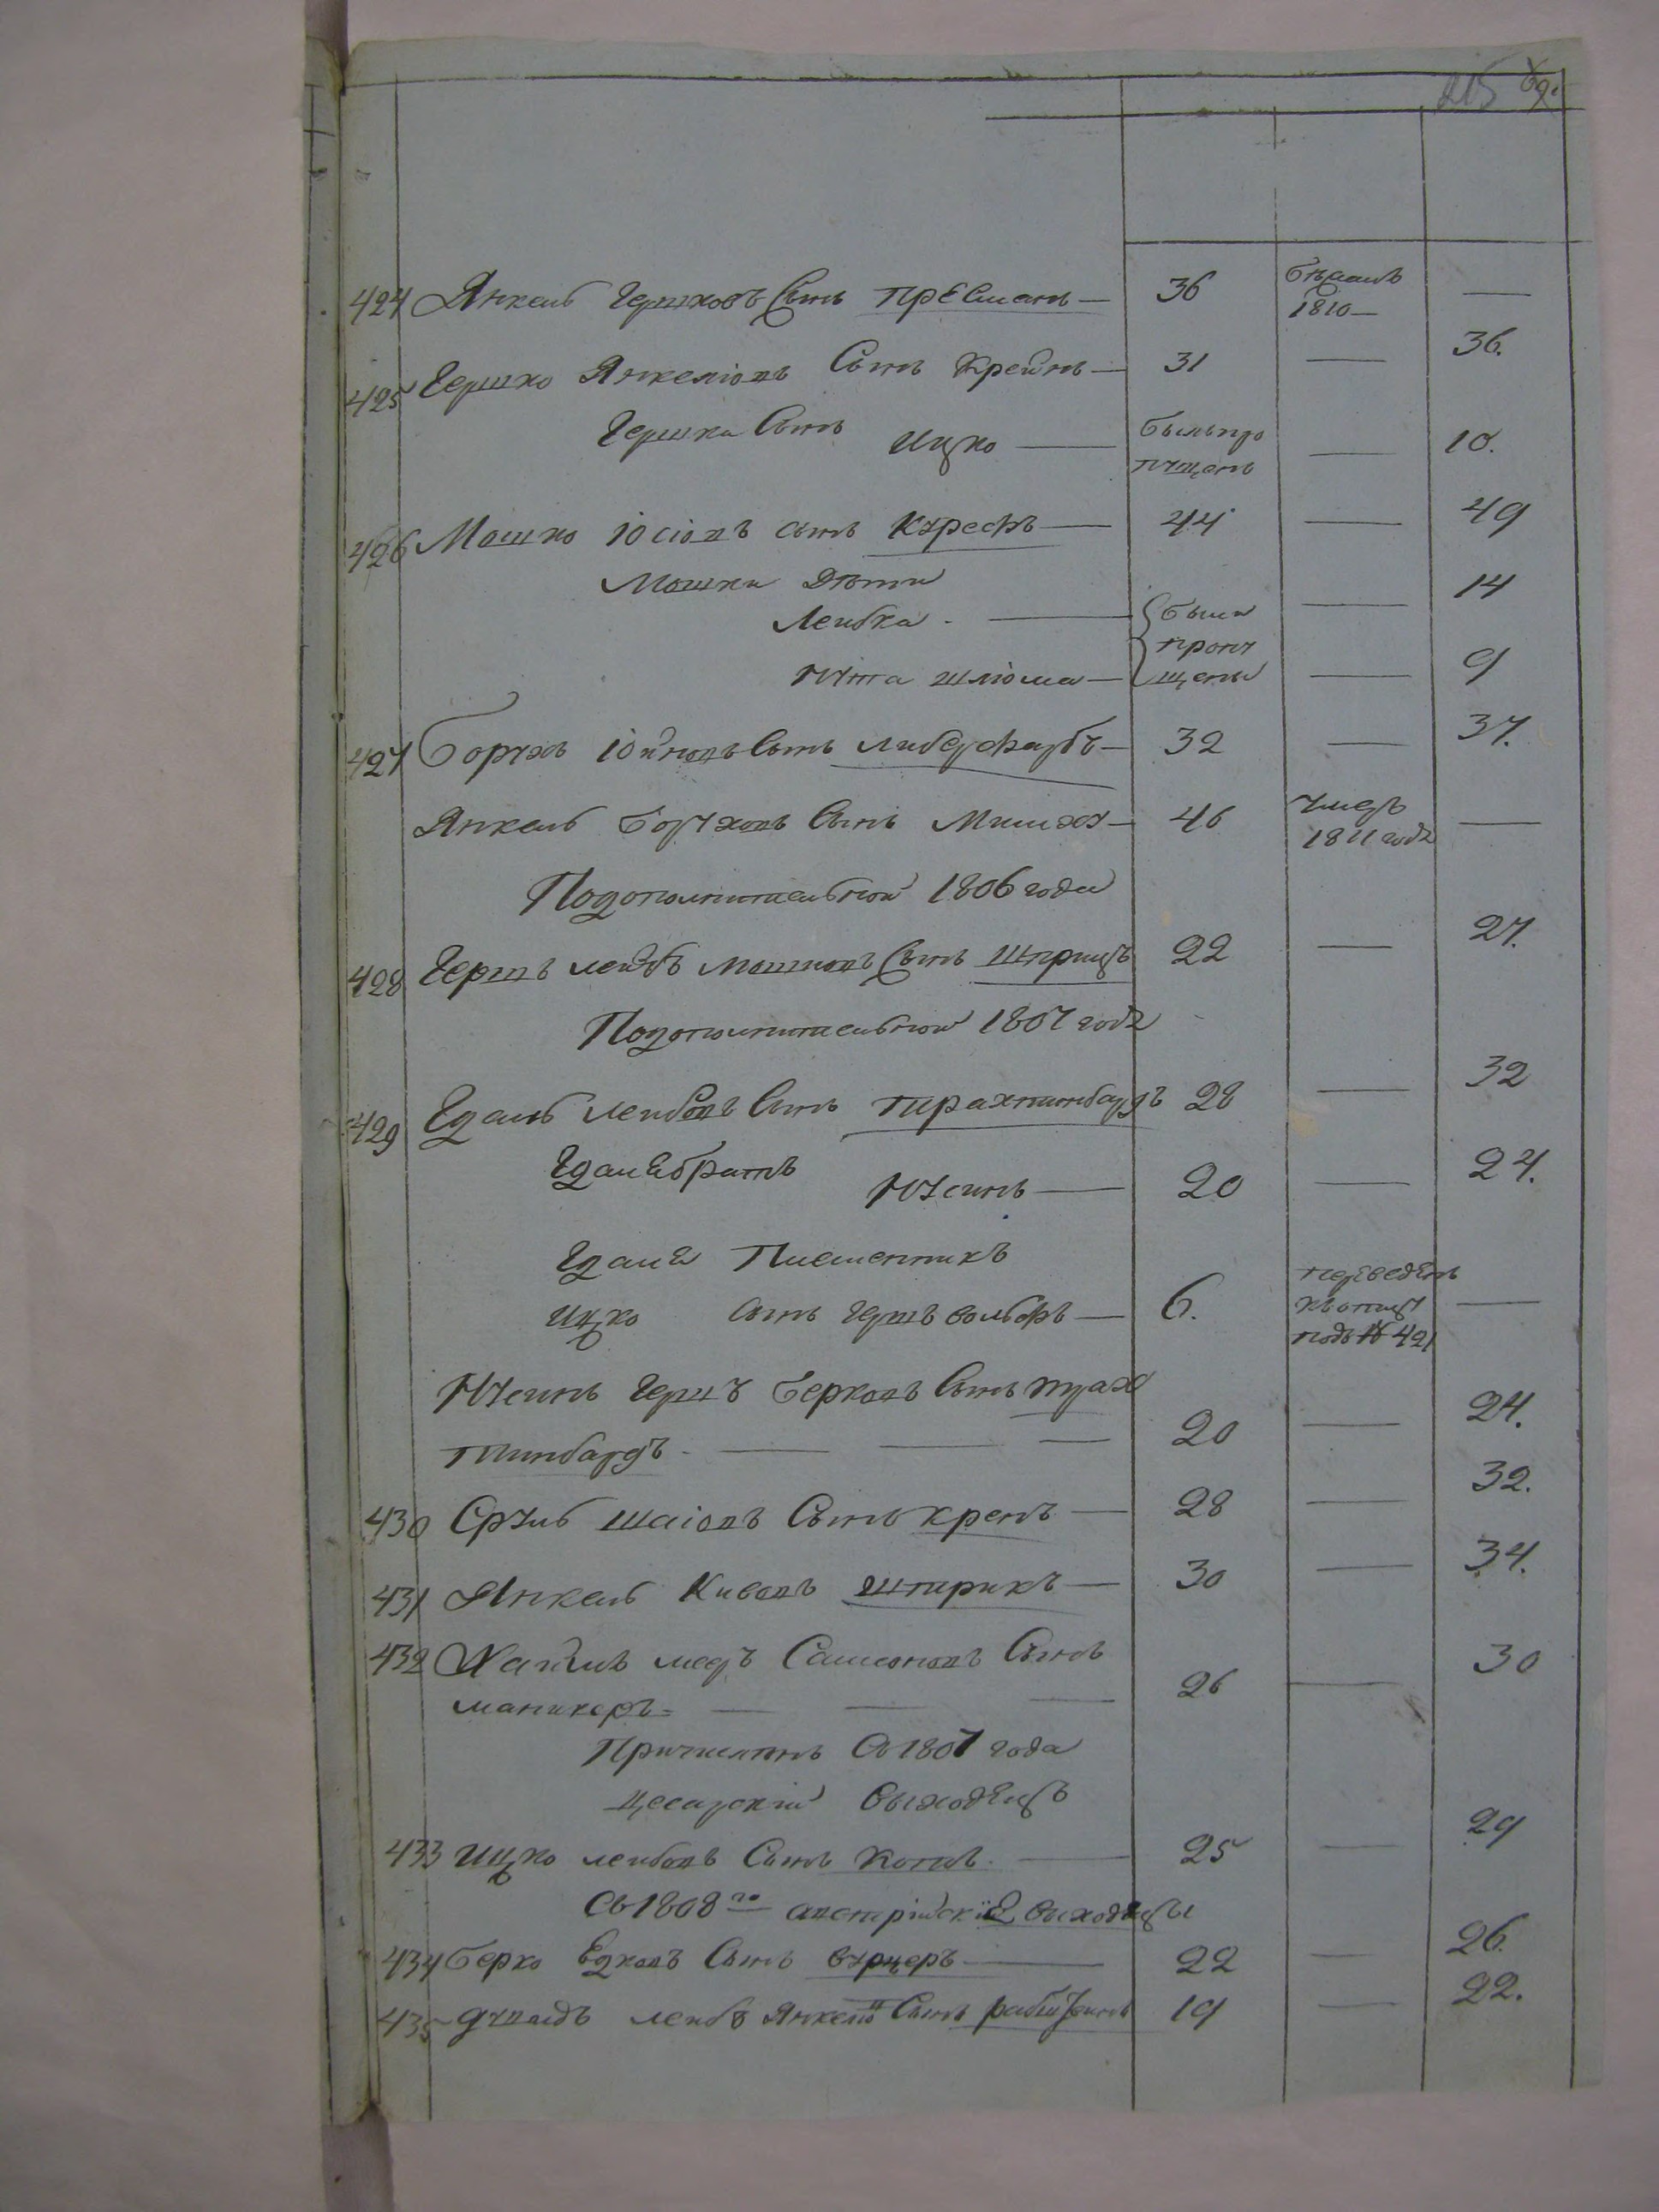 215
424 Янкель Гершковъ Сынъ пресманъ — 36 бѣжалъ 1810 — —
425 Гершко Янкеліовъ Сынъ Крейнъ — 31 — 36.
Гершка Сынъ Ицко — былъ про пущенъ — 10.
426 Мошко іосіовъ сынъ Курефъ — 44 — 49
Мошки Дѣти
Лейбка — были — 14
пропу
Нута шліома — щены — 9
427 Борухъ іойновъ Сынъ либерфарбъ — 32 — 37.
Янкель Боруховъ Сынъ — 46 умеръ 1811 года —
Подополнительной 1806 года
428 Гершъ лейбъ мошковъ Сынъ шприцъ 22 — 27.
Подополнительной 1807 года
429 Гдаль лейбовъ Сынъ трахтинбардъ 28 — 32
Гдале братъ Нусинъ — 20 — 24.
Гдаля Племенникъ
Ицко Сынъ гершъ вольфъ — 6. переведенъ —
подъ № 421
Нусинъ гершъ Берковъ Сынъ трах
тинбардъ — — — 20 — 24.
430 Сруль шаіовъ Сынъ кренъ — 28 — 32.
431 Янкель Кивовъ штрикъ — 30 — 34.
432 Хаимъ мееръ Самсоновъ Сынъ
маникеръ — — — 26 — 30
Причисленъ Съ 1807 года
цесарскій выходецъ
433 Ицко лейбовъ Сынъ — 25 — 29
Съ 1808го австрійскіе выходцы
434 Берко Ецковъ Сынъ вурцеръ — 22 — 26.
435 лейбъ Янкеліовъ Сынъ — 19 — 22.